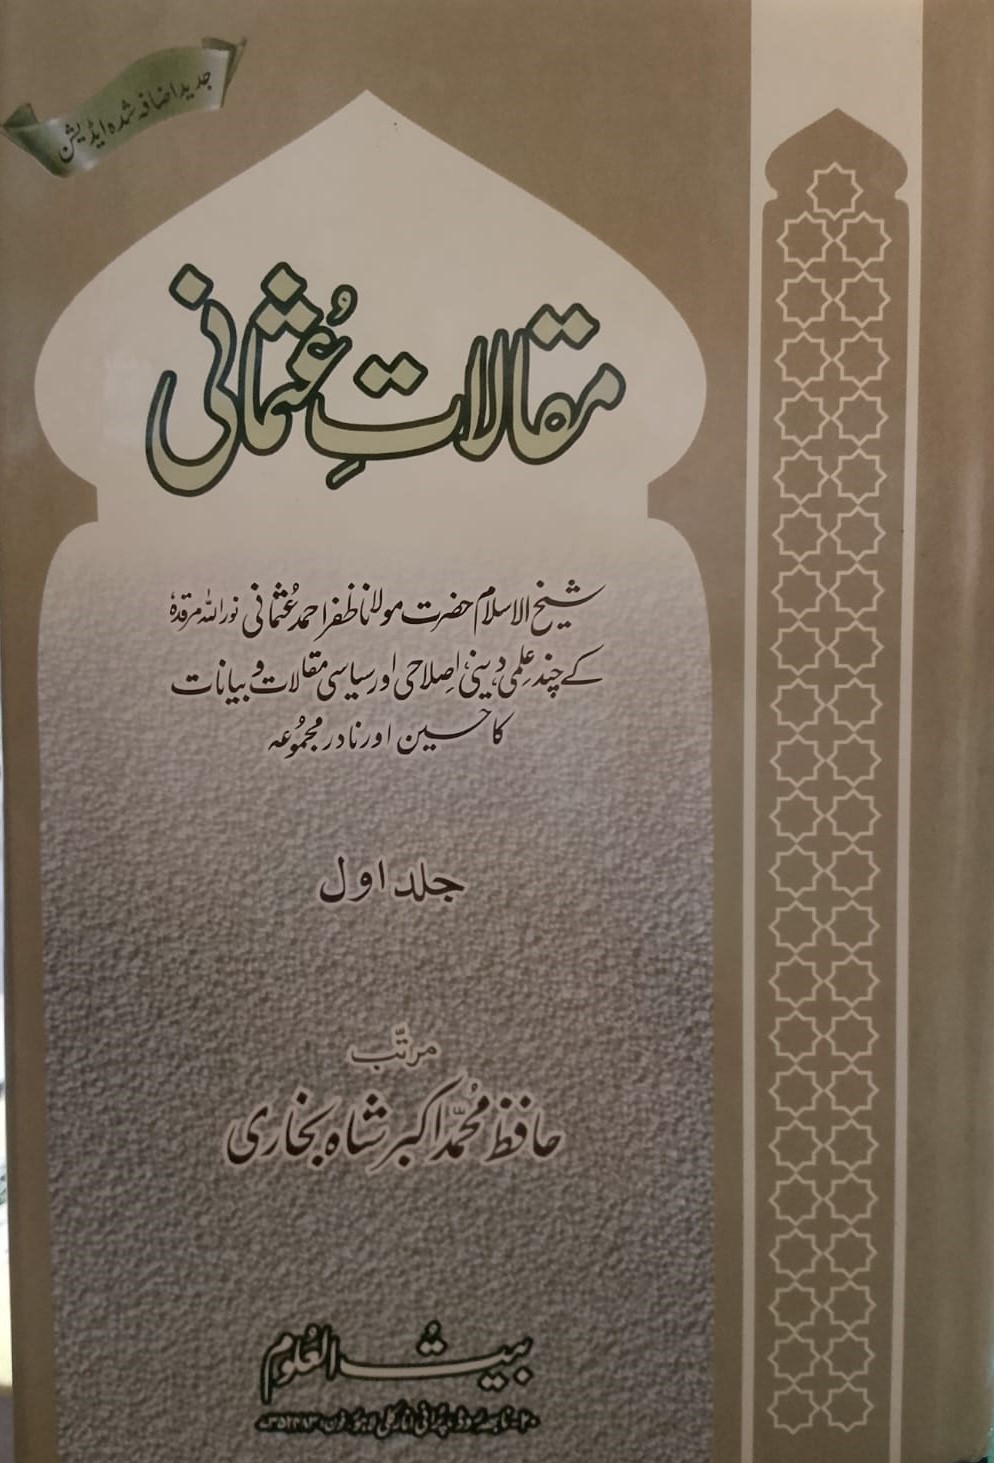 جدید اضافہ شدہ ایڈیشن
مقالاتِ عُثمانی
شیخ الاسلام حضرت مولانا ظفر احمد عُثمانی نور اللہ مرقدہٗ
کے چند علِمی، دینی، اِصلاحی اور سیاسی مقالات و بیانات
کا حسین اور نادر مجمُوعہ
جلد اول
مرتّب
حافظ مُحمّد اکبر شاہ بخاری
بیتُ العُلوم
۲۰۔ نابھہ روڈ، پُرانی انارکلی لاہور۔ فون: